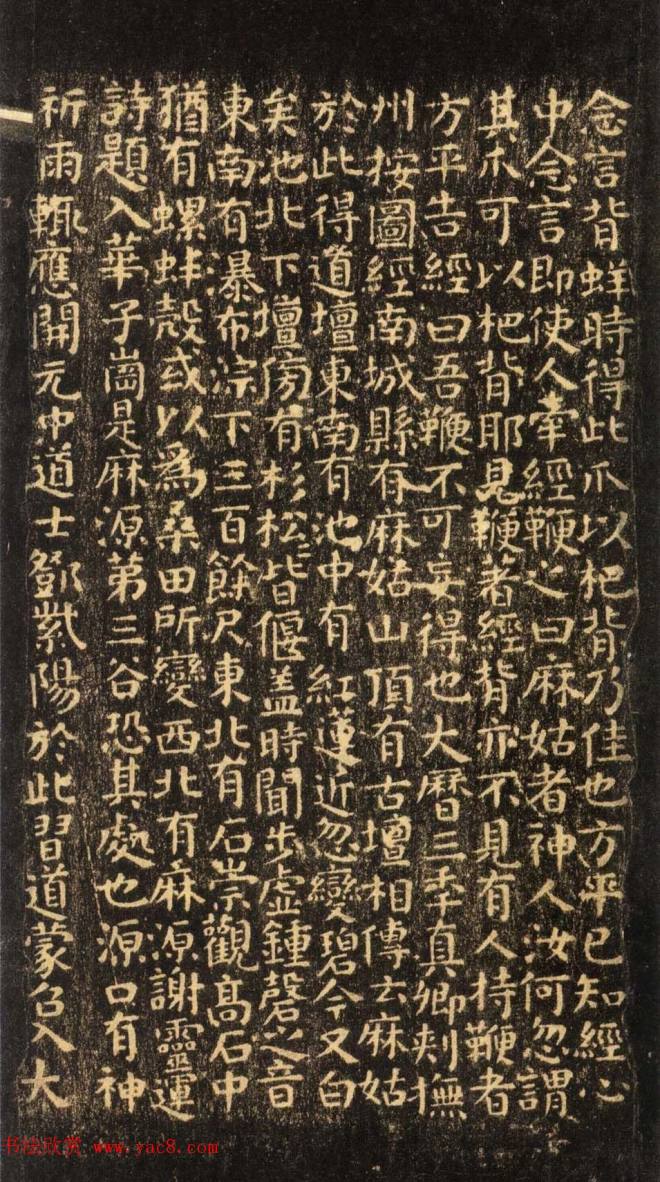 念言背蛘時得此爪以杷背乃佳也方平已知經心
中念言即使人牽經鞭之曰麻姑者神人汝何忽謂
其爪可以杷背耶見鞭著經背亦不見有人持鞭者
方平告經曰吾鞭不可妄得也大曆三年真卿刾撫
州按圖經南城縣有麻姑山頂有古壇相傳云麻姑
於此得道壇東南有池中有紅蓮近忽變碧今又白
矣池北下壇傍有杉松〻皆偃盖時聞步虛鍾磬之音
東南有瀑布淙下三百餘尺東北有石崇觀高石中
猶有螺蚌殻或以為桑田所變西北有麻源謝靈運
詩題入華子崗是麻源第三谷恐其處也源口有神
祈雨輒應開元中道士鄧紫陽於此習道蒙召入大
书法欣赏 www.yac8.com